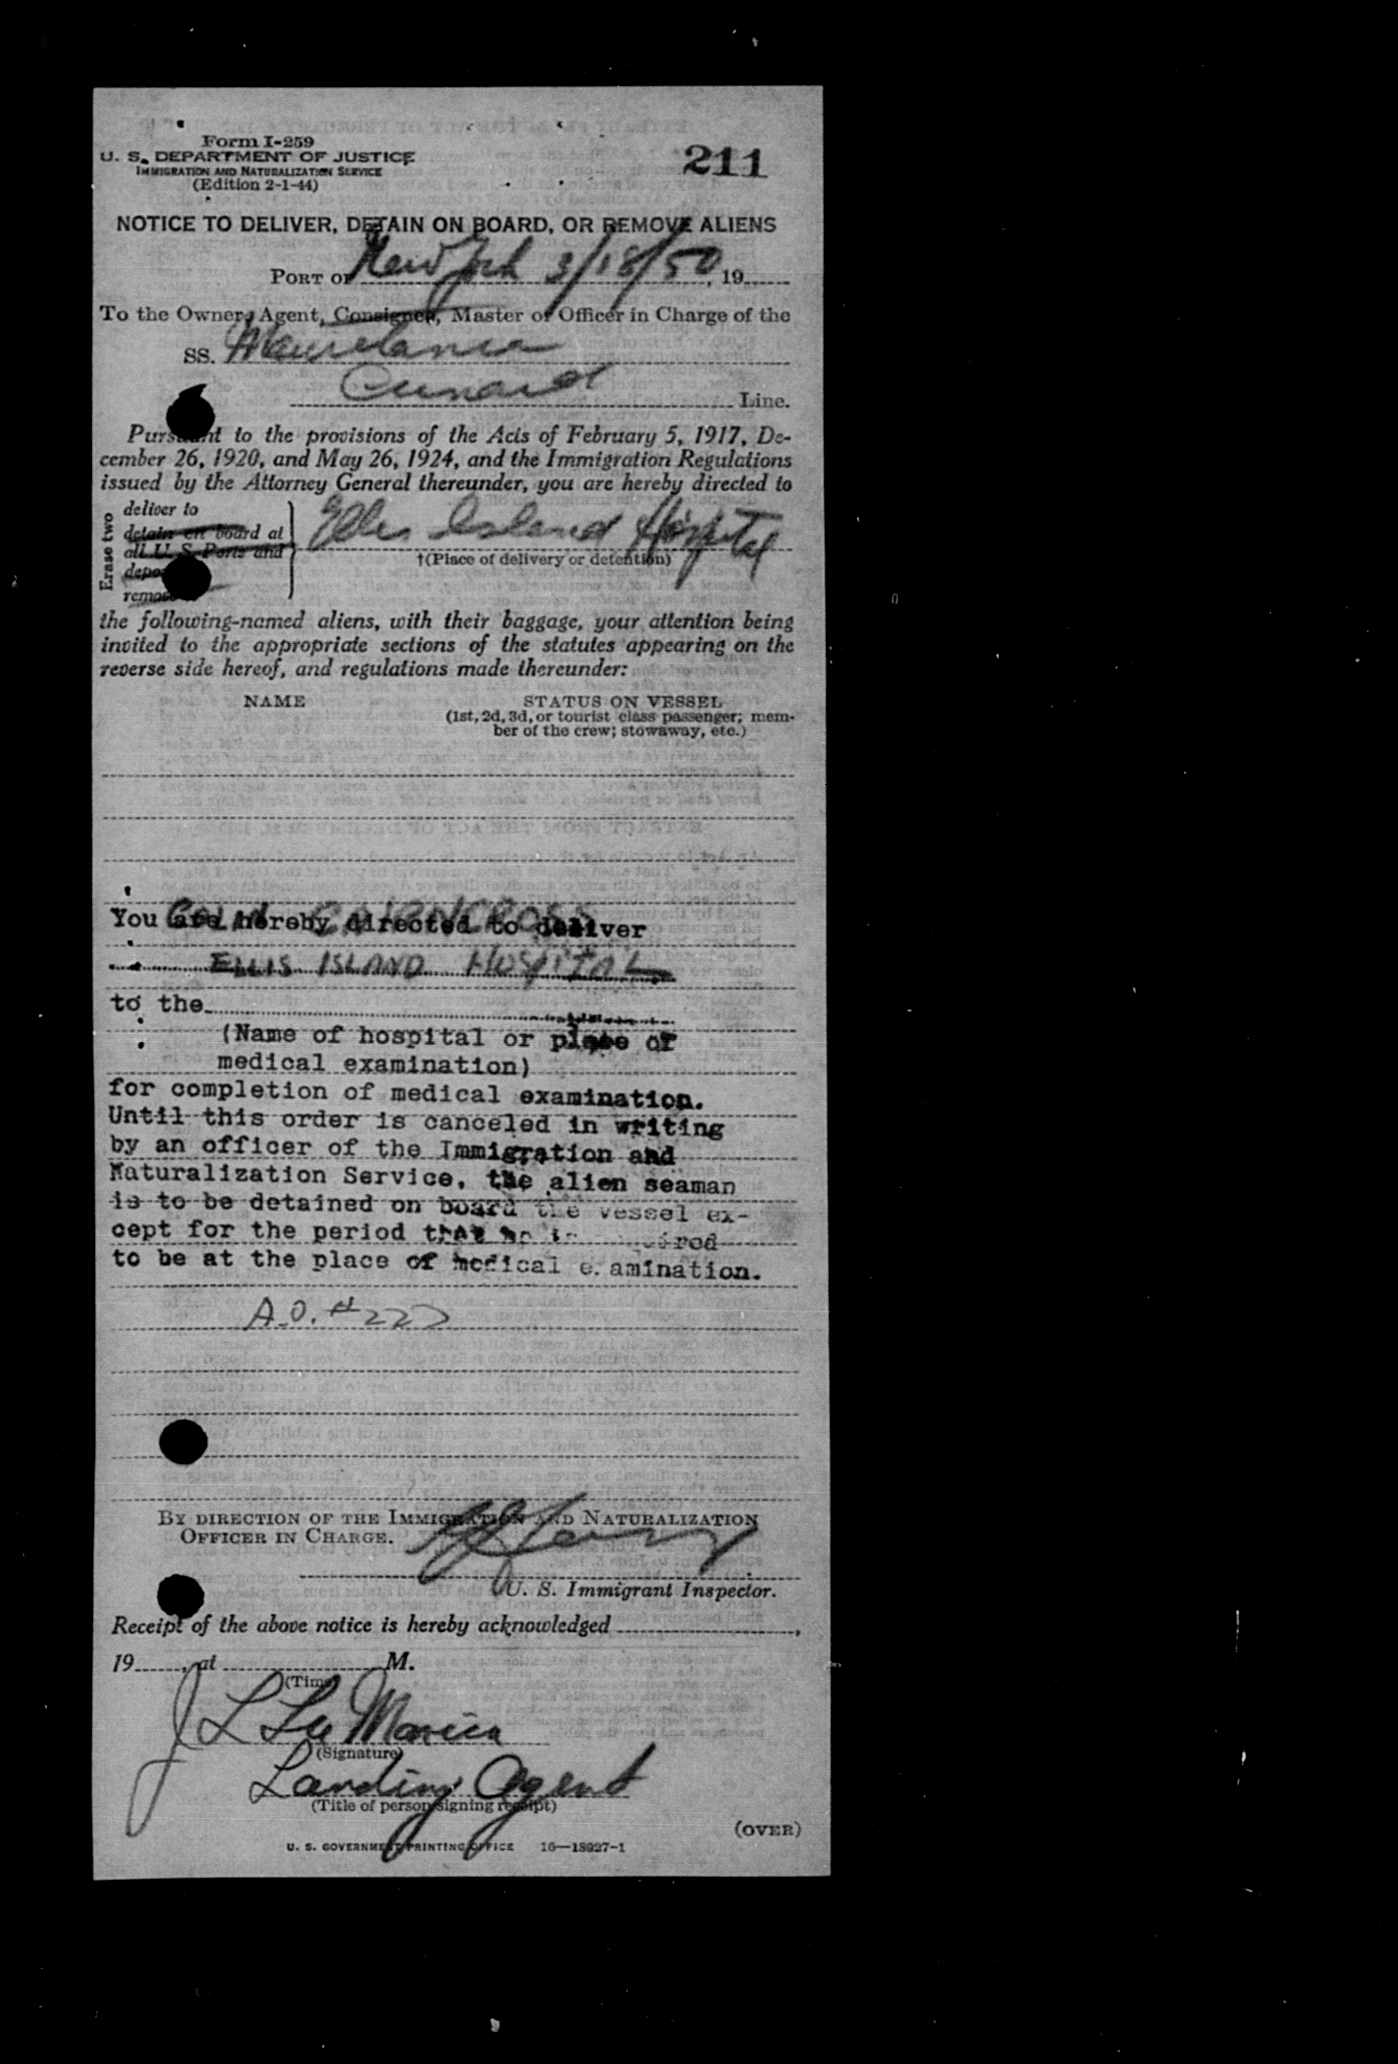 Form I-259
U. S. DEPARTMENT OF JUSTICE
IMMIGRATION AND NATURALIZATION SERVICE
(Edition 2-1-44)
211
NOTICE TO DELIVER, DETAIN ON BOARD, OR REMOVE ALIENS
PORT OF New York 3/18/50, 19
To the Owner, Agent, Consignee, Master or Officer in Charge of the
SS. Mauretania
Cunard Line.
Pursuant to the provisions of the Acts of February 5, 1917, De-
cember 26, 1920, and May 26, 1924, and the Immigration Regulations
issued by the Attorney General thereunder, you are hereby directed to
Erase two
deliver to
detain on board at
all U. S. Ports and
remove
Ellis Island Hospital
†(Place of delivery or detention)
the following-named aliens, with their baggage, your attention being
invited to the appropriate sections of the statutes appearing on the
reverse side hereof, and regulations made thereunder:
NAME
STATUS ON VESSEL
(1st, 2d, 3d, or tourist class passenger; mem-
ber of the crew; stowaway, etc.)
CAIRNCROSS
You are hereby directed to deliver
ELLIS ISLAND HOSPITAL
to the
(Name of hospital or place of
medical examination)
for completion of medical examination.
Until this order is canceled in writing
by an officer of the Immigration and
Naturalization Service, the alien seaman
is to be detained on board the vessel ex-
cept for the period that he is required
to be at the place of medical examination.
A.O. #227
BY DIRECTION OF THE IMMIGRATION AND NATURALIZATION
OFFICER IN CHARGE.
U. S. Immigrant Inspector.
Receipt of the above notice is hereby acknowledged
19, at M.
(Time)
J L
(Signature)
Landing Agent
(Title of person signing receipt)
(OVER)
U. S. GOVERNMENT PRINTING OFFICE 16—18927-1